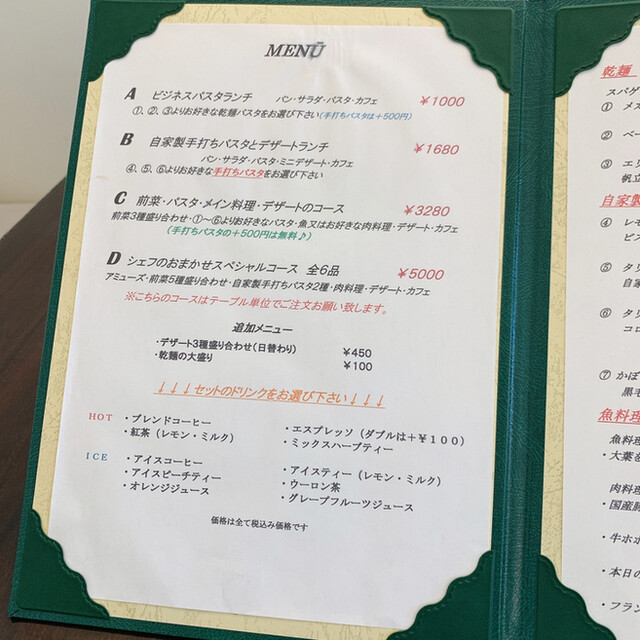 MENU
A ビジネスパスタランチ パン・サラダ・パスタ・カフェ ￥1000
①、②、③よりお好きな乾麺パスタをお選び下さい(手打ちパスタは+500円)
B 自家製手打ちパスタとデザートランチ ￥1680
パン・サラダ・パスタ・ミニデザート・カフェ
④、⑤、⑥よりお好きな手打ちパスタをお選び下さい
C 前菜・パスタ・メイン料理・デザートのコース ￥3280
前菜3種盛り合わせ・①～⑥よりお好きなパスタ・魚又はお好きな肉料理・デザート・カフェ
(手打ちパスタの+500円は無料♪)
D シェフのおまかせスペシャルコース 全6品 ￥5000
アミューズ・前菜5種盛り合わせ・自家製手打ちパスタ2種・肉料理・デザート・カフェ
※こちらのコースはテーブル単位でご注文お願い致します。
追加メニュー
・デザート3種盛り合わせ(日替わり) ￥450
・乾麺の大盛り ￥100
↓↓↓セットのドリンクをお選び下さい↓↓↓
HOT ・ブレンドコーヒー ・エスプレッソ（ダブルは+￥100）
・紅茶（レモン・ミルク） ・ミックスハーブティー
ICE ・アイスコーヒー ・アイスティー（レモン・ミルク）
・アイスピーチティー ・ウーロン茶
・オレンジジュース ・グレープフルーツジュース
価格は全て税込み価格です
乾麺
スパゲ
① メ
② ベー
③ エリ
帆立
自家製
④ レモ
ピス
⑤ タリ
自家
⑥ タリ
コロ
⑦ かぼ
黒毛
魚料理
魚料理
・大葉
肉料理
・国産豚
・牛ホホ
・本日の
・フラン